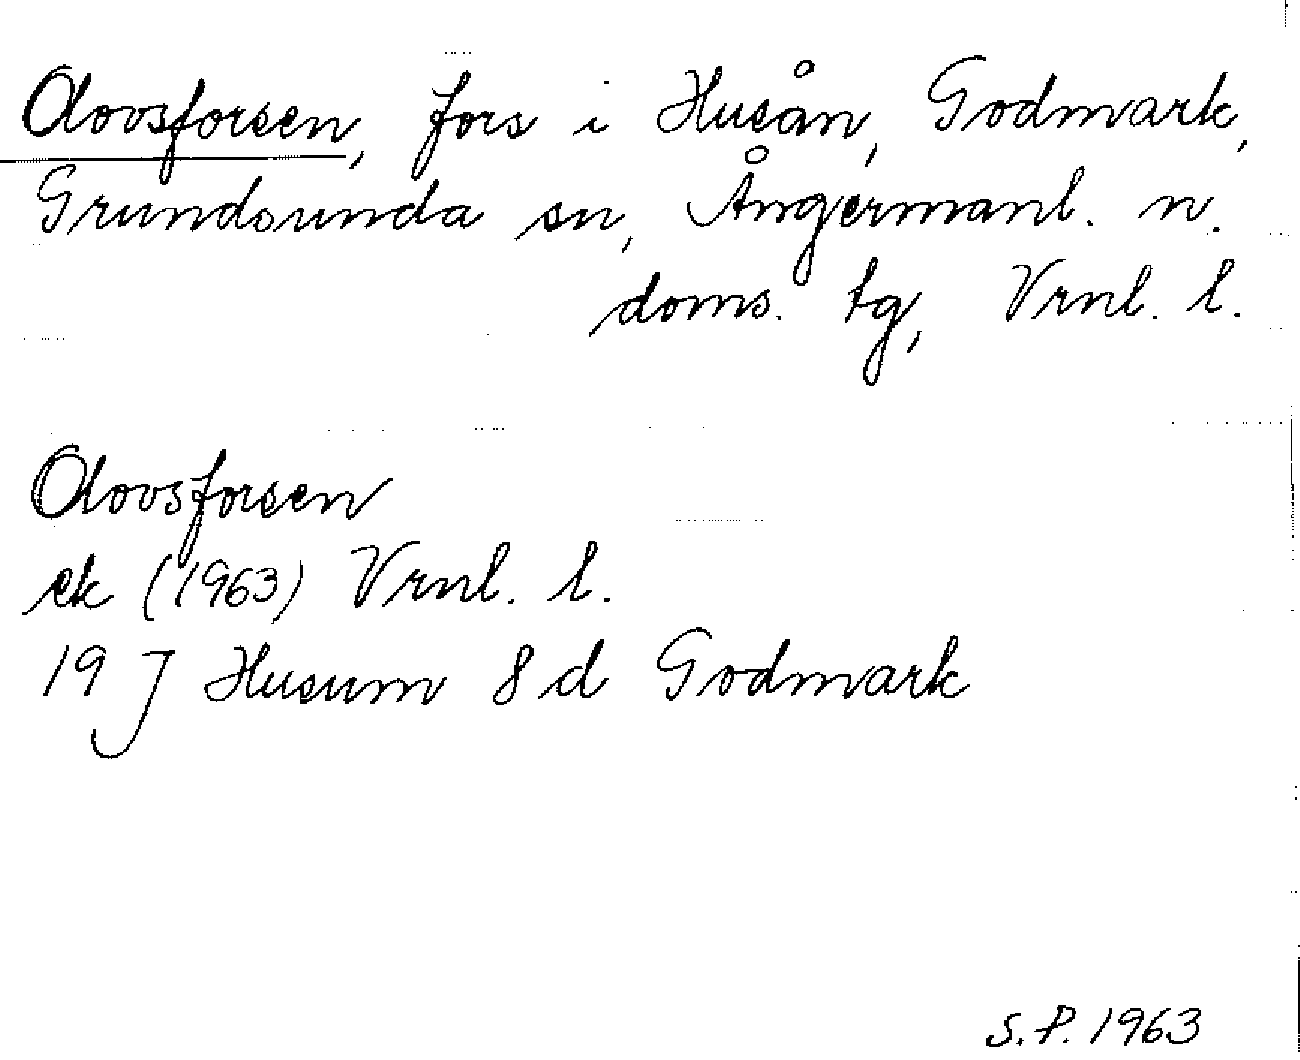 Olovsforsen, fors i Husån, Godmark,
Grundsunda sn, Ångermanl. n.
doms. tg, Vrnl. l.
Olovsforsen
ek (1963) Vrnl. l.
19 J Husum 8 d Godmark
S.P. 1963